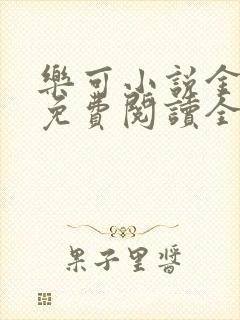 樂可小說全
免費閱讀全
果子里醬